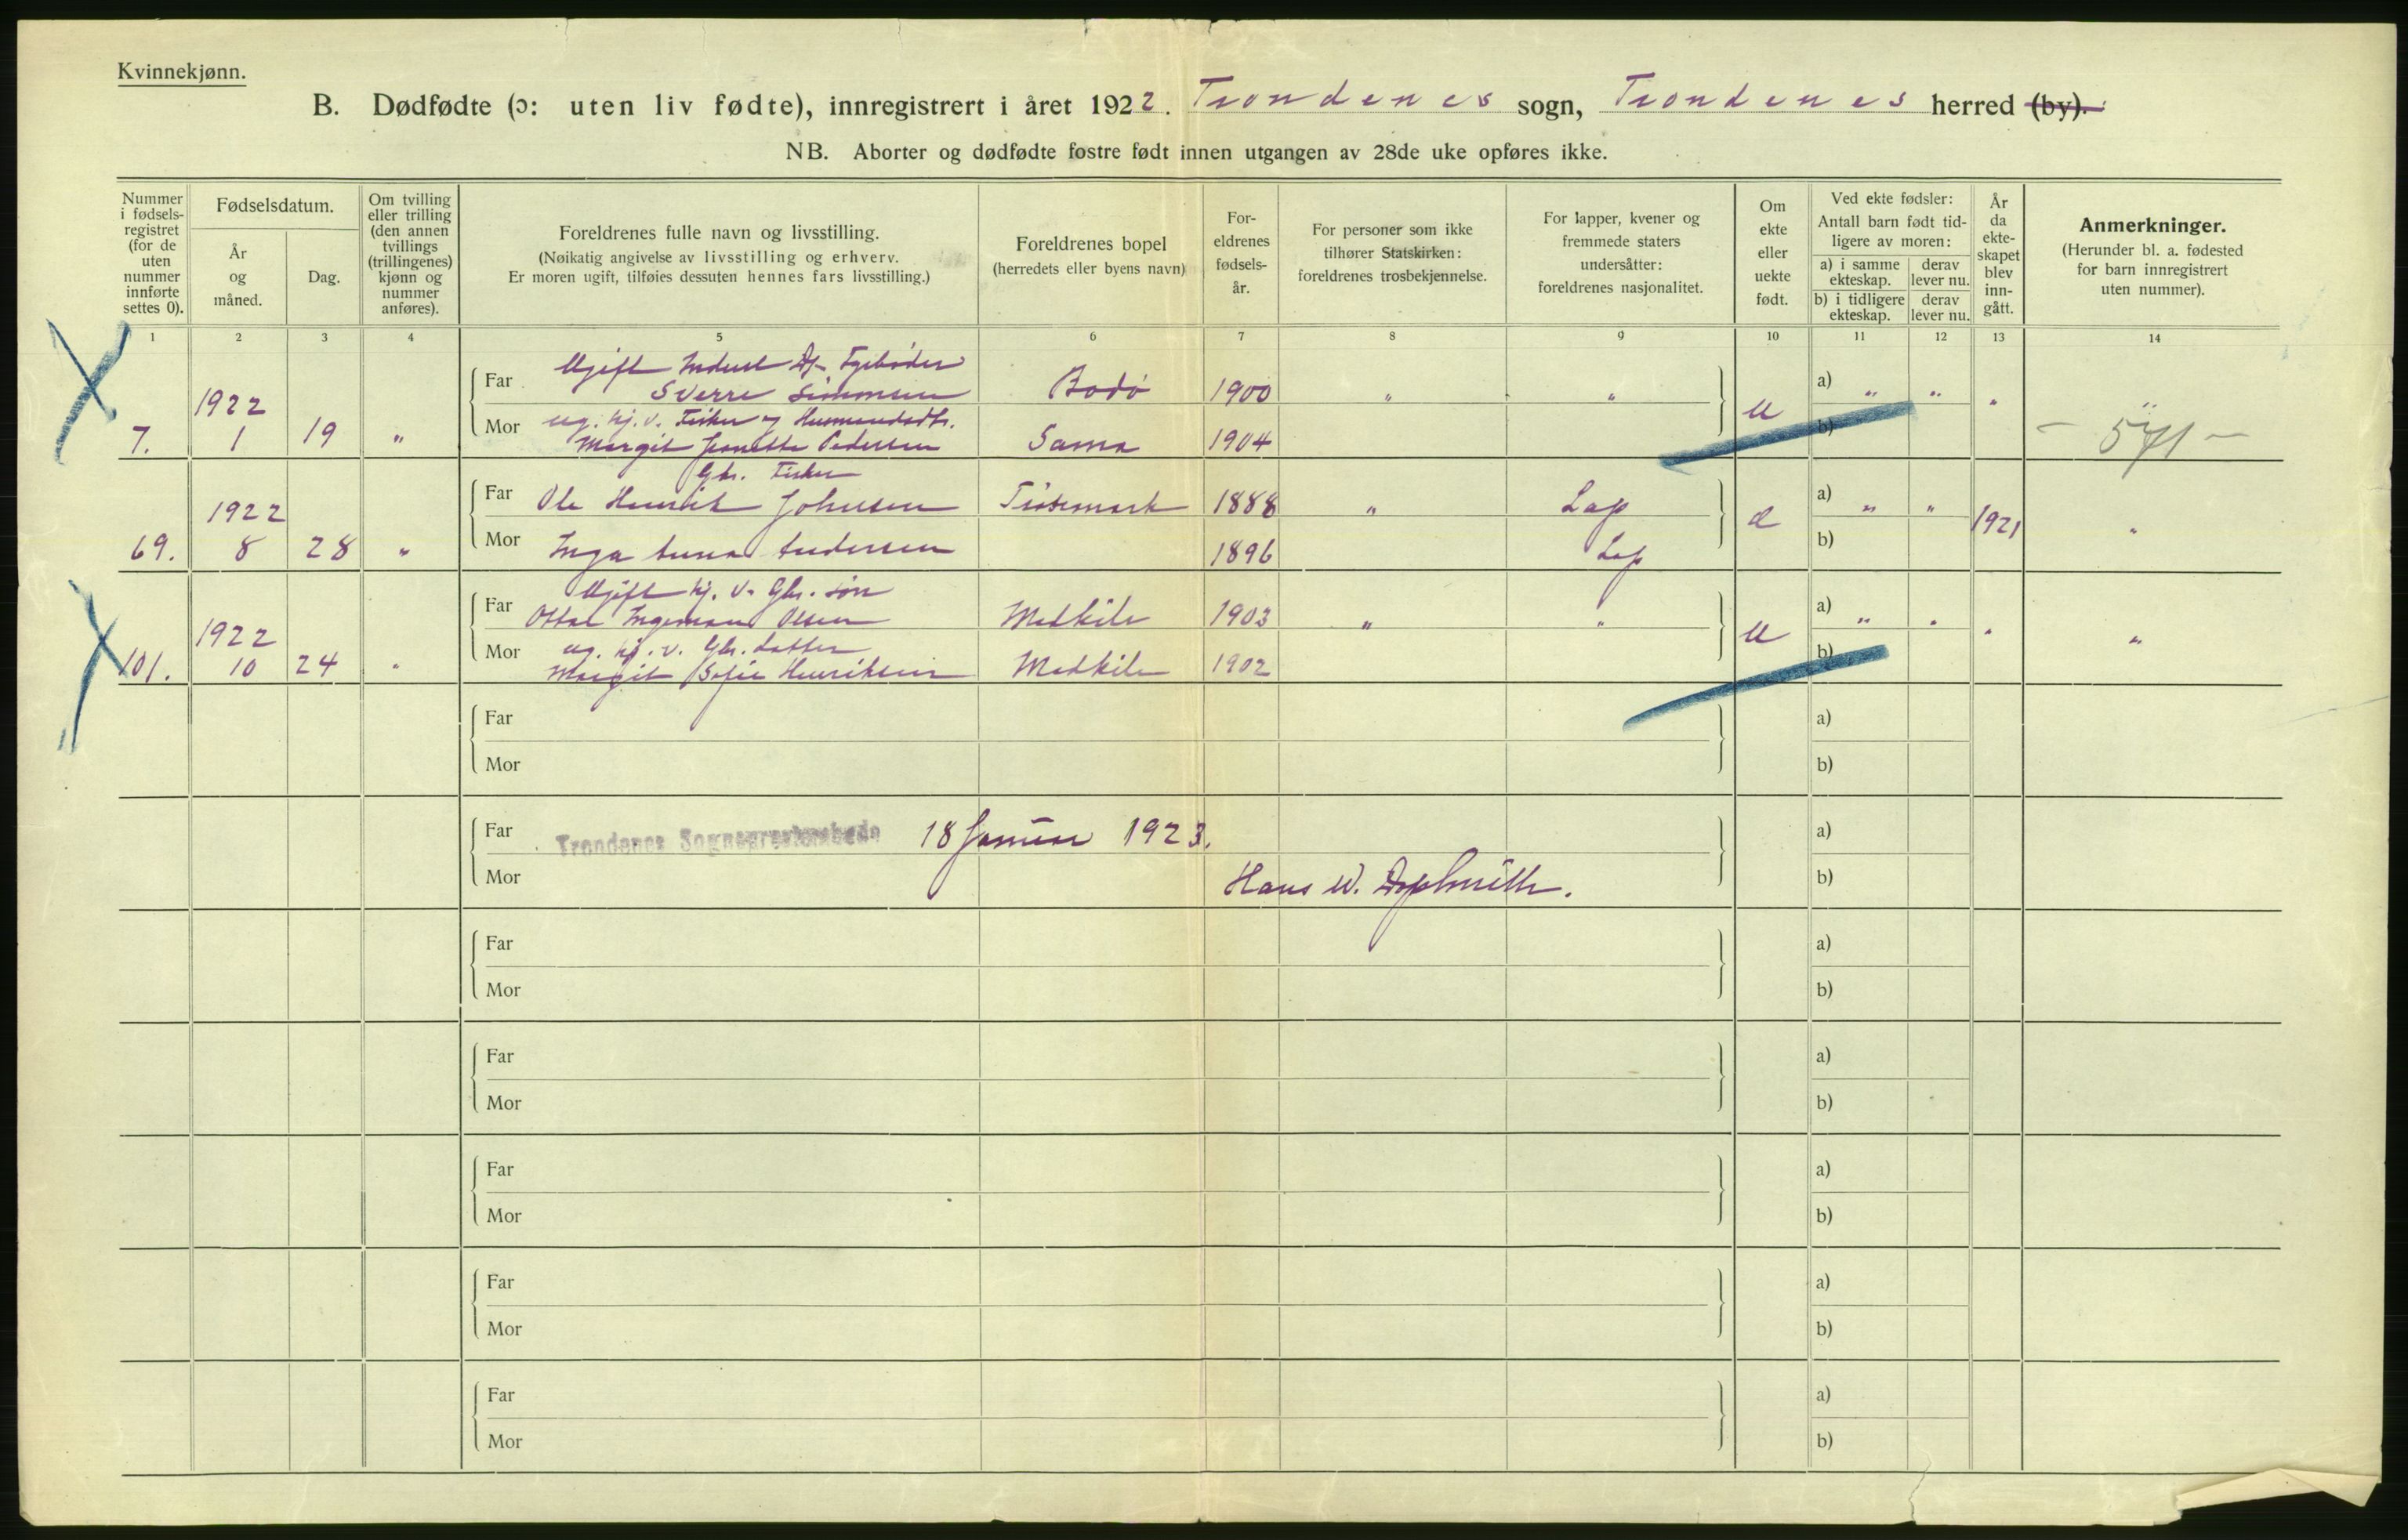 Kvinnekjønn.
B. Dødfødte (ɔ: uten liv fødte), innregistrert i året 1922. Trondenes sogn, Trondenes herred (by).
NB. Aborter og dødfødte fostre født innen utgangen av 28de uke opføres ikke.
Nummer i fødsels-registret (for de uten nummer innførte settes 0).
Fødselsdatum.
År og måned.
Dag.
Om tvilling eller trilling (den annen tvillings (trillingenes) kjønn og nummer anføres).
Foreldrenes fulle navn og livsstilling.
(Nøikatig angivelse av livsstilling og erhverv.
Er moren ugift, tilføies dessuten hennes fars livsstilling.)
Foreldrenes bopel
(herredets eller byens navn)
For-eldrenes fødsels-år.
For personer som ikke tilhører Statskirken: foreldrenes trosbekjennelse.
For lapper, kvener og fremmede staters undersåtter: foreldrenes nasjonalitet.
Om ekte eller uekte født.
Ved ekte fødsler:
Antall barn født tid-ligere av moren:
a) i samme ekteskap.
derav lever nu.
b) i tidligere ekteskap.
derav lever nu.
År da ekte-skapet blev inn-gått.
Anmerkninger.
(Herunder bl. a. fødested for barn innregistrert uten nummer).
1 2 3 4 5 6 7 8 9 10 11 12 13 14
Ugift
Far Sverre Simonsen Bodø 1900 " " a) " " "
1922
ug. hj. v. Fisker og Husmandsdtr. u
7. 1 19 " Mor Margit Jeanette Pedersen Sama 1904 b) - 571 -
Gbr. Fisker
Far Ole Henrik Johnsen 1888 " Lap a) " "
1922 e 1921 "
69. 8 28 " Mor Inga Anna Andersen 1896 Lap b)
Ugift hj. v. Gbr. søn
Far Ottal Ingeman Olsen Medkila 1903 " " a) " " "
1922 u "
ug. hj. v. Gbr. datter
101. 10 24 " Mor Margit Sofie Henriksen Medkila 1902 b)
Far a)
Mor b)
Far Trondenes Sogneprestembede 18 Januar 1923. a)
Mor Hans W. b)
Far a)
Mor b)
Far a)
Mor b)
Far a)
Mor b)
Far a)
Mor b)
Far a)
Mor b)